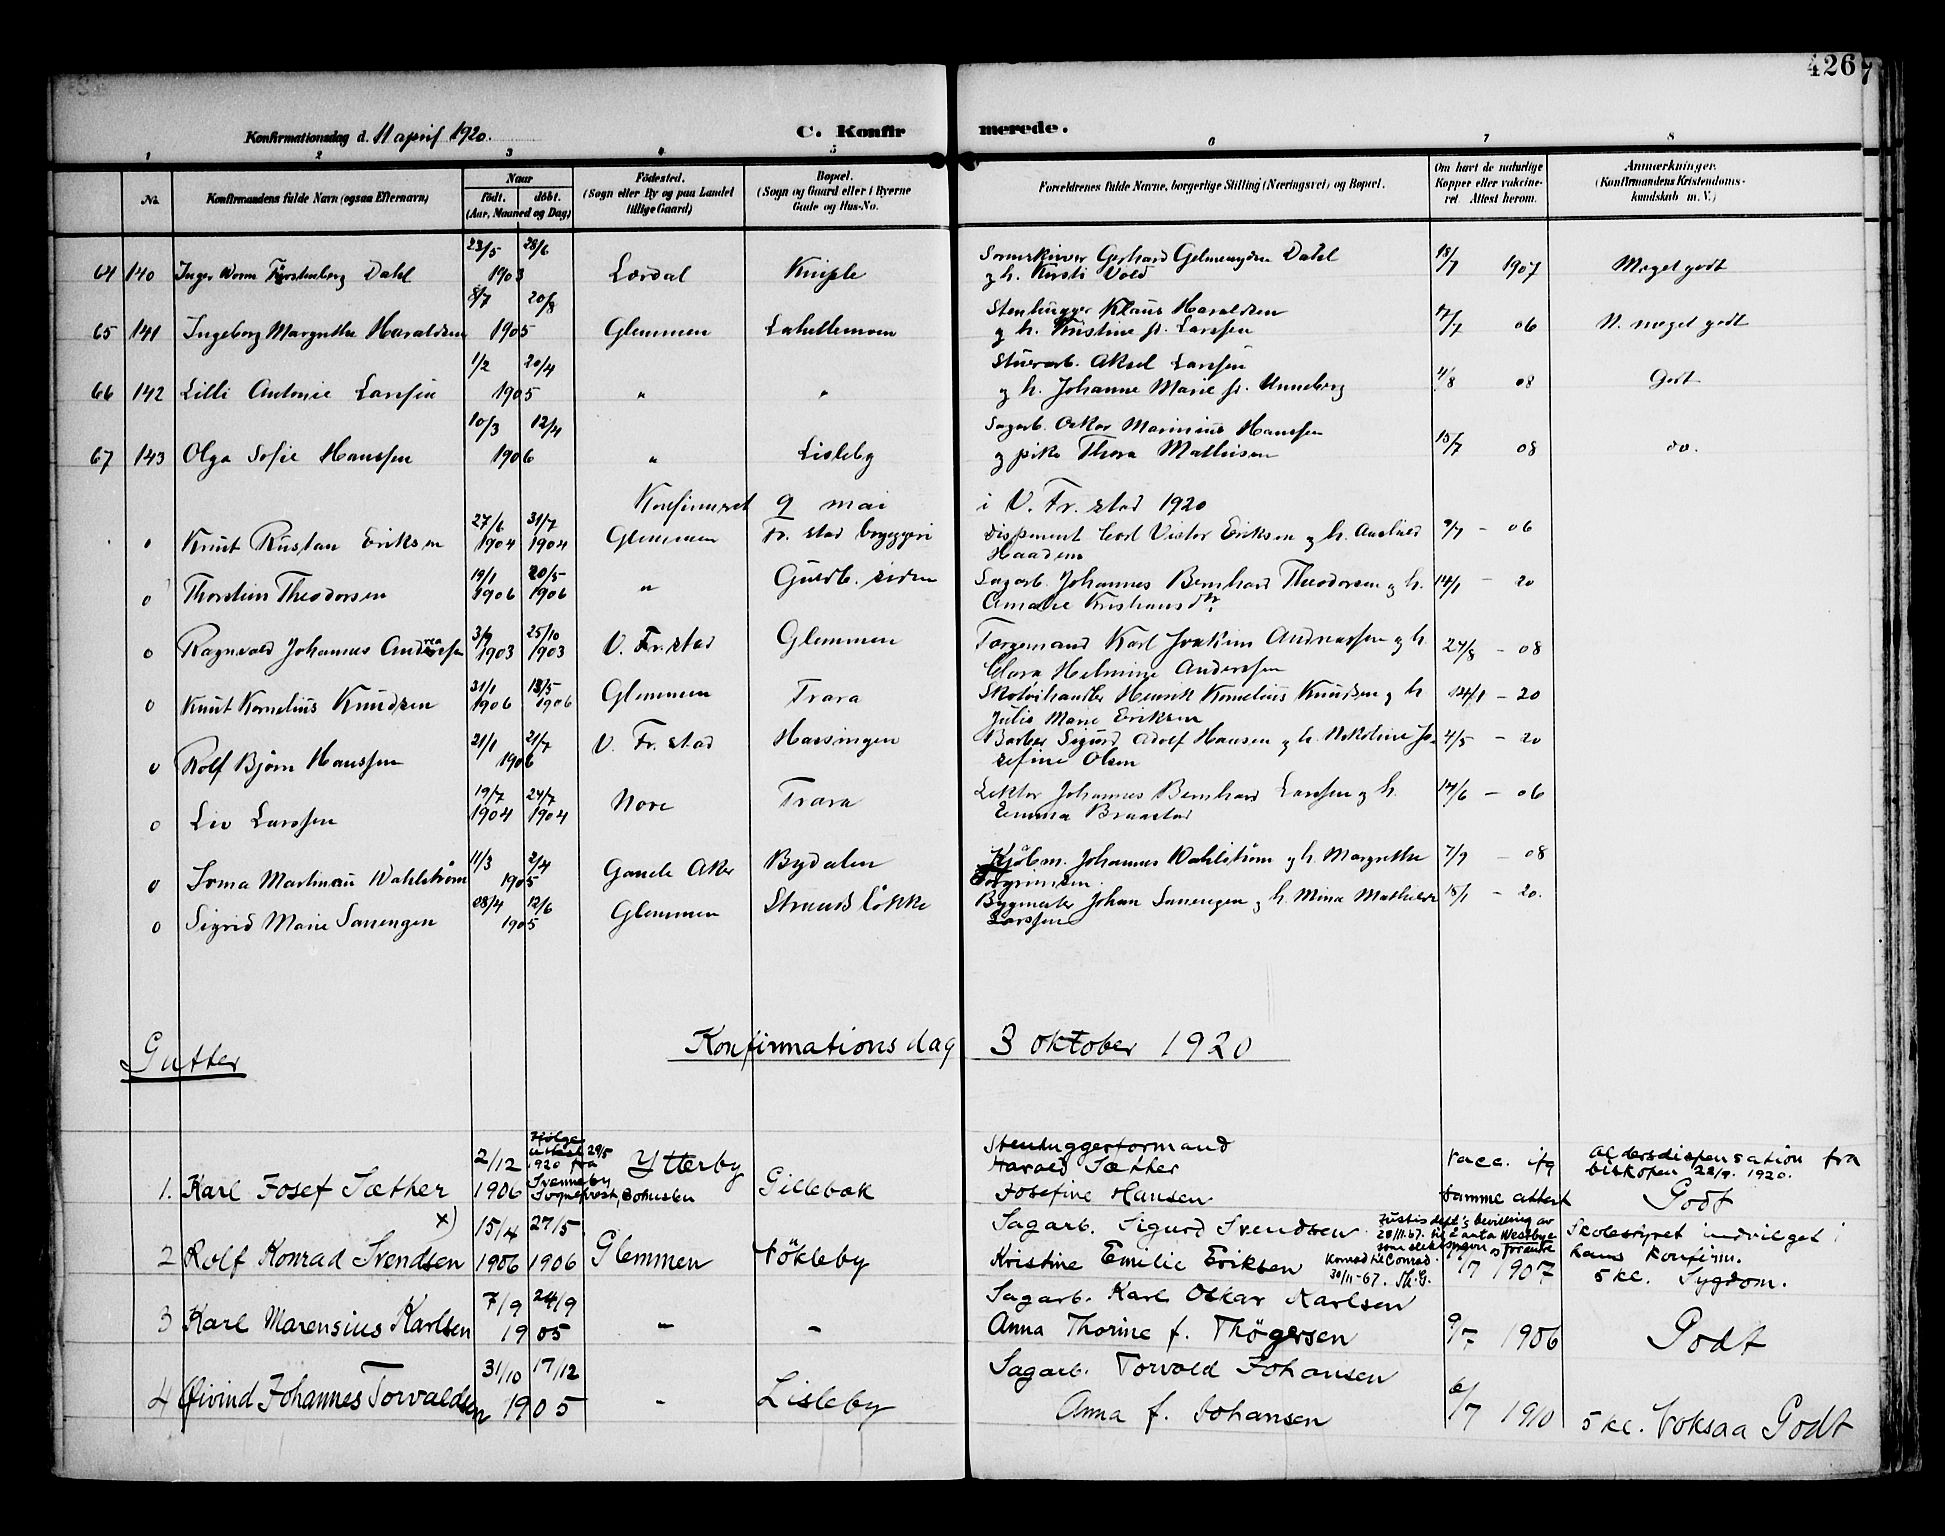 426
Konfirmationsdag d. 11 april 1920. C. Konfirmerede.
1 2 3 4 5 6 7 8
No. Konfirmandens fulde Navn (ogsaa Efternavn) Naar födt. döbt. (Aar, Maaned og Dag) Födested. (Sogn eller By og paa Landet tillige Gaard) Bopæl. (Sogn og Gaard eller i Byerne Gade og Hus-No. Forældrenes fulde Navne, borgerlige Stilling (Næringsvei) og Bopæl. Om havt de naturlige Kopper eller vaksineret. Attest herom. Anmærkninger. (Konfirmandens Kristendomskundskab m. V.)
64 140 Inger Dahl 23/5 28/6 1903 Lærdal Kniple Gerhard Dahl
g h. Kirsti Vold 18/7 1907 Meget godt
65 141 Ingeborg Margrethe Haraldsen 8/7 20/8 1905 Glemmen Lahellemoen Stenhugger Klaus Haraldsen
g h. Kristine f. Larssen 17/7 06 N. meget godt
66 142 Lilli Antonie Larssen 1/2 20/4 1905 " " Aksel Larssen
g h. Johanne Marie f. Unneberg 4/8 08 Godt
67 143 Olga Sofie Hanssen 10/3 12/4 1906 " Lisleby Sagarb. Oskar Marinius Hanssen
g pike Thora Mathisen 15/7 08 do.
Konfirmeret 9 mai i V. Fr.stad 1920
o Knut Rustan Eriksen 27/6 1904 31/7 1904 Glemmen Fr. stad bryggeri Disponent Carl Victor Eriksen g h.
Haadem 9/7 - 06
o Thorstein Theodorsen 19/1 1906 20/5 1906 " Guldb. siden Sagarb. Johannes Bernhard Theodorsen g h.
Amalie Kristiansdtr. 14/1 - 20
o Ragnvald Johannes Andreassen 3/9 1903 25/10 1903 V. Fr.stad Glemmen Torgemand Karl Joakim Andreassen g h.
Clara Helmine Anderssen 24/8 - 08
o Knut Kornelius Knudsen 31/1 1906 13/5 1906 Glemmen Trara Skotöihandler Henrik Kornelius Knudsen g h
Julie Marie Eriksen 14/1 - 20
o Rolf Bjørn Hanssen 21/1 21/7 1906 V. Fr.stad Hassingen Barber Sigurd Adolf Hansen g h. Nikoline Josefine Olsen 4/5 - 20
o Liv Larssen 19/7 1904 24/7 1904 Nore Trara Lektor Johannes Bernhard Larssen g h.
Emma Braastad 14/6 - 06
o Irma Wahlström 11/3 2/4 1905 Gamle Aker Bydalen Kjöbm. Johannes Wahlström g h. Margrethe
Torgrimsen 7/9 - 08
o Sigrid Marie Sanengen 08/4 12/6 1905 Glemmen Strandløkke Bygmester Johan Sanengen g h. Mina Mathilde
Larssen 18/1 - 20.
Gutter Konfirmationsdag 3 oktober 1920
1. Karl Josef Sæther 2/12 1906 Ifølge attest 29/5 1920 fra Svenneby Sogneprest, Bohuslen Ytterby Gillebæk Stenhuggerformand
Harald Sæther
Josefine Hansen vacc. ifg samme attest Aldersdispensation fra
biskopen 22/9. 1920.
Godt
2 Rolf Konrad Svendsen x) 15/4 1906 27/5 1906 Glemmen Nökleby Sagarb. Sigurd Svendsen
Kristine Emilie Eriksen 1907
Justisdept's bevilling av
28/11.67. til å anta Westbye
som slektsnavn og forandre
Konrad til Conrad.
30/11-67. Th.G.
Skolestyret indvilget i
hans konfirm.
5 kl. Sygdom.
3 Karl Marensius Karlsen 7/9 24/9 1905 - - Sagarb. Karl Oskar Karlsen
Anna Thorine f. Thögersen 9/7 1906 Godt
4 Øivind Johannes Torvaldsen 31/10 17/12 1905 - Lisleby Sagarb. Torvald Johansen
Anna f. Johansen 6/7 1910 5 kl. Voksaa Godt